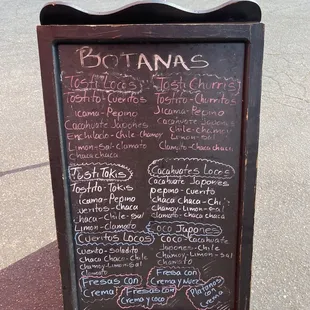 BOTANAS
Tosti Locos
Tostito-Cueritos
icama-Pepino
Cacahuate Japones
Chile-Chamoy
Limon-Sal-clamato
Chaca chaca
Tosti Churris
Tostito-Churritos
Jicama-Pepino
Cacahuate Japones
Chile-chamoy
Limon-Sal
Clamato chaca chaca
Tosti Takis
Tostito-Takis
icama-Pepino
ueritos-Chaca
haca-Chile-Sal
Limon-Clamato
Cacahuates Locos
Cacahuate Japones
pepino-Cuerito
chaca chaca-Chi
chamoy-Limon-Sal
clamato-chaca chaca
Cueritos Locos
Cuerito-
chaca chaca-Chile
chamoy-Limon-Sal
clamato
oco Japones
Coco-Cacahuate
Japones-Chile
Chamoy-Limon-Sal
Fresas con
Crema
Fresas con
Crema y coco
Fresa con
Crema y Nuez
Platanos
crema